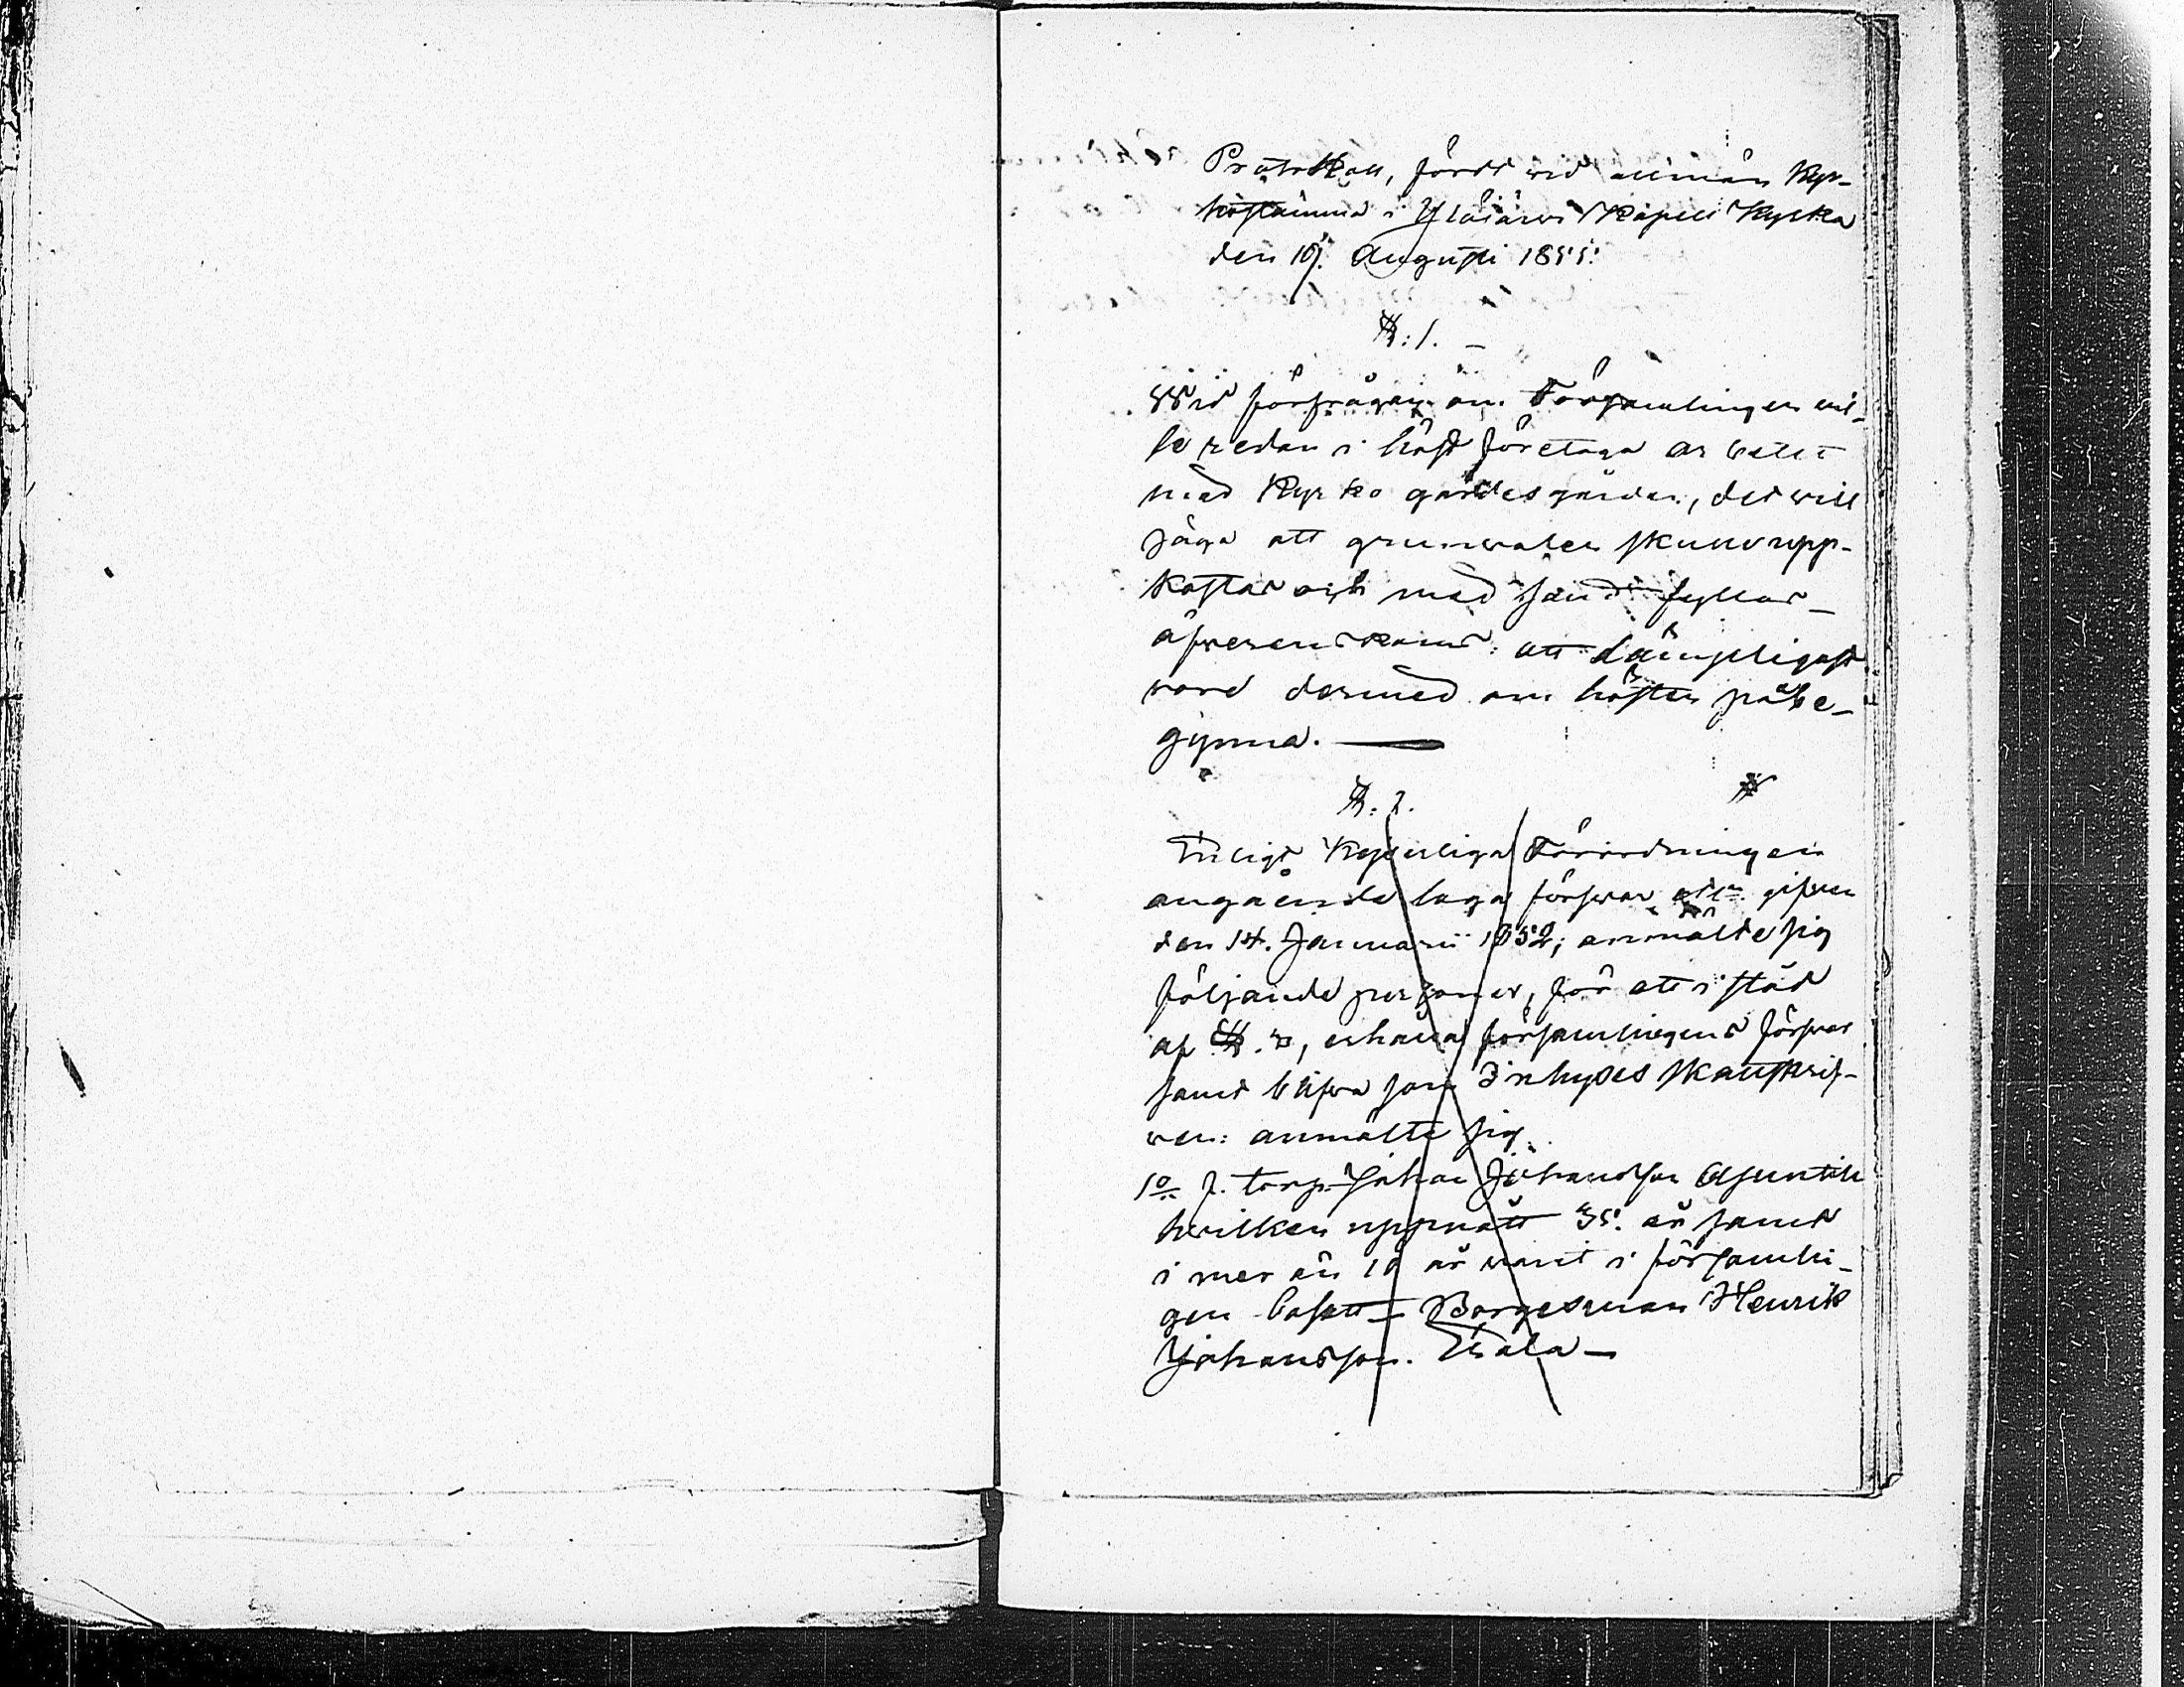 Protokoll, fördt wid allmän Kyr-
kostämma i Ylöjärwi Kapell Kyrka
den 19. Augusti 1855.
§:1.
Wid förfrågan om Församlingen wil-
le redan i höst företaga arbetet
med Kyrko gärdesgården, det will
säga att grunwalen skulle upp-
kastas och med sand fyllas_
öfwerenskoms: att lämpligast
wore dermed om hösten påbe-
gynna. —
§:2.
Enligt Kejserliga Förordningen
angående laga förswar gifwen
den 14. Januarii 1852; anmälte sig
följande personer, för att i stöd
af §. , erhålla församlingens förswar
samt blifwa som Inhyses skattskrif-
wen: anmälte sig
1o f. torp. Johan Johansson Asuntila
hwilken uppnått 35. år samt
i mer än 10 år warit i församlin-
gen bosatt – Borgesman Henrik
Johansson. —